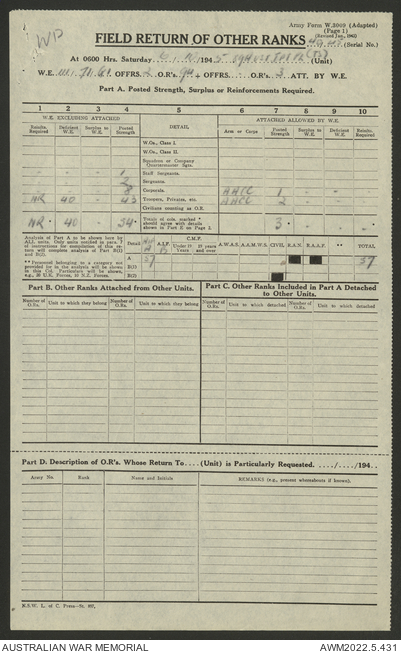 Army Form W.3009 (Adapted)
(Page 1)
(Revised Jan., 1945)
WD
FIELD RETURN OF OTHER RANKS
(Serial No.)
At 0600 Hrs. Saturday 194 5 (Unit)
W.E. OFFRS. O.R's. + OFFRS. O.R's. 3 ATT. BY W.E.
Part A. Posted Strength, Surplus or Reinforcements Required.
1 2 3 4 5 6 7 8 9 10
W.E. EXCLUDING ATTACHED DETAIL ATTACHED ALLOWED BY W.E.
Reinfts. Required Deficient W.E. Surplus to W.E. Posted Strength Arm or Corps Posted Strength Deficient W.E. Surplus to W.E. Reinfts. Required
W.Os., Class I.
W.Os., Class II.
Squadron or Company Quartermaster Sgts.
1 Staff Sergeants.
2 Sergeants.
8 Corporals. AACC 1
NR 40 - Troopers, Privates, etc. AACC 2
Civilians counting as O.R.
NR 40 - Totals of cols. marked * should agree with details shown in Part E on Page 2. 3
Analysis of Part A to be shown here by ALL units. Only units entitled to para. 7 of instructions for compilation of this return will complete analysis of Part B(1) and B(2).
Detail A.I.F. C.M.F. Under 19 Years 19 years and over A.W.A.S. A.A.M.W.S. Civil R.A.N. R.A.A.F. ** TOTAL
A 37 37
** Personnel belonging to a category not provided for in the analysis will be shown in this Col. Particulars will be shown, e.g., 20 U.K. Forces, 10 N.Z. Forces.
B(1)
B(2)
Part B. Other Ranks Attached from Other Units.
Part C. Other Ranks Included in Part A Detached to Other Units.
Number of O.Rs. Unit to which they belong Number of O.Rs. Unit to which they belong Number of O.Rs. Unit to which detached Number of O.Rs. Unit to which detached
Part D. Description of O.R's. Whose Return To....(Unit) is Particularly Requested. ...../...../194..
Army No. Rank Name and Initials REMARKS (e.g., present whereabouts if known).
AUSTRALIAN WAR MEMORIAL AWM2022.5.431